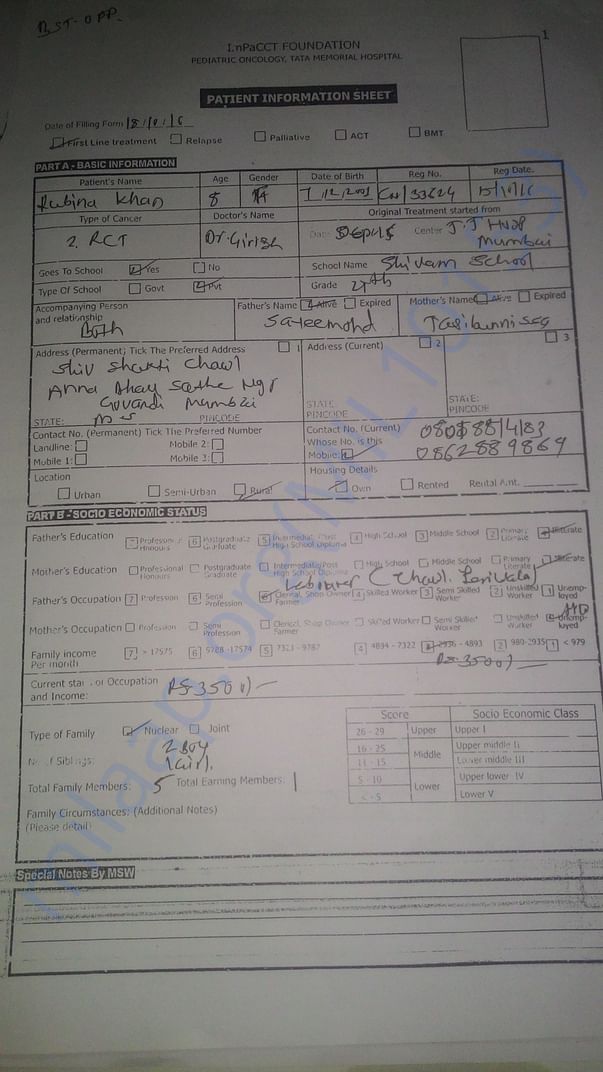 BST-OPP
1
I.nPaCCT FOUNDATION
PEDIATRIC ONCOLOGY, TATA MEMORIAL HOSPITAL
PATIENT INFORMATION SHEET
Date of Filling Form
First Line treatment Relapse Palliative ACT BMT
PART A - BASIC INFORMATION
Patient's Name Age Gender Date of Birth Reg No. Reg Date.
Rubina Khan 8 CN/33624
Type of Cancer Doctor's Name Original Treatment started from
RCT Dr. Girish Date Center J.J Hosp
Mumbai
Goes To School Yes No School Name Shivam School
Type Of School Govt Pvt Grade
Accompanying Person and relationship Father's Name Alive Expired Mother's Name Alive Expired
Both
Address (Permanent) Tick The Preferred Address 1 Address (Current) 2 3
Shiv Shakti Chawl
Anna Bhay Sathe Ngr
Govandi Mumbai
STATE: PINCODE STATE: PINCODE STATE: PINCODE
Contact No. (Permanent) Tick The Preferred Number Contact No. (Current)
Landline: Mobile 2: Whose No. is this
Mobile 1: Mobile 3: Mobile: 0862889869
Location Housing Details
Urban Semi-Urban Rural Own Rented Rental Amt.
PART B - SOCIO ECONOMIC STATUS
Father's Education 7 Profession / Honours 6 Postgraduate Graduate 5 Intermediate Post High School Diploma 4 High School 3 Middle School 2 Primary Literate Illiterate
Mother's Education Professional Honours Postgraduate Graduate Intermediate/Post High School Diploma High School Middle School Primary Literate Illiterate
Labourer (Chawl
Father's Occupation 7 Profession 6 Semi Profession Clerical, Shop Owner Farmer 4 Skilled Worker 3 Semi Skilled Worker 2 Unskilled Worker 1 Unemployed
Mother's Occupation Profession Semi Profession Clerical, Shop Owner Farmer Skilled Worker Semi Skilled Worker Unskilled Worker Unemployed
Family income Per month 7 > 17575 6 9788 -17574 5 7323 - 9787 4 4894 - 7322 2936 - 4893 2 980-2935 1 < 979
Rs 3500/-
Current status of Occupation and Income: Rs 3500/-
Score Socio Economic Class
Type of Family Nuclear Joint
26 - 29 Upper Upper I
No of Siblings: 2 Boy
1 Girl.
16 - 25 Middle Upper middle II
11 - 15 Lower middle III
5 - 10 Lower Upper lower IV
< - 5 Lower V
Total Family Members: 5 Total Earning Members: 1
Family Circumstances: (Additional Notes)
(Please detail)
Special Notes By MSW